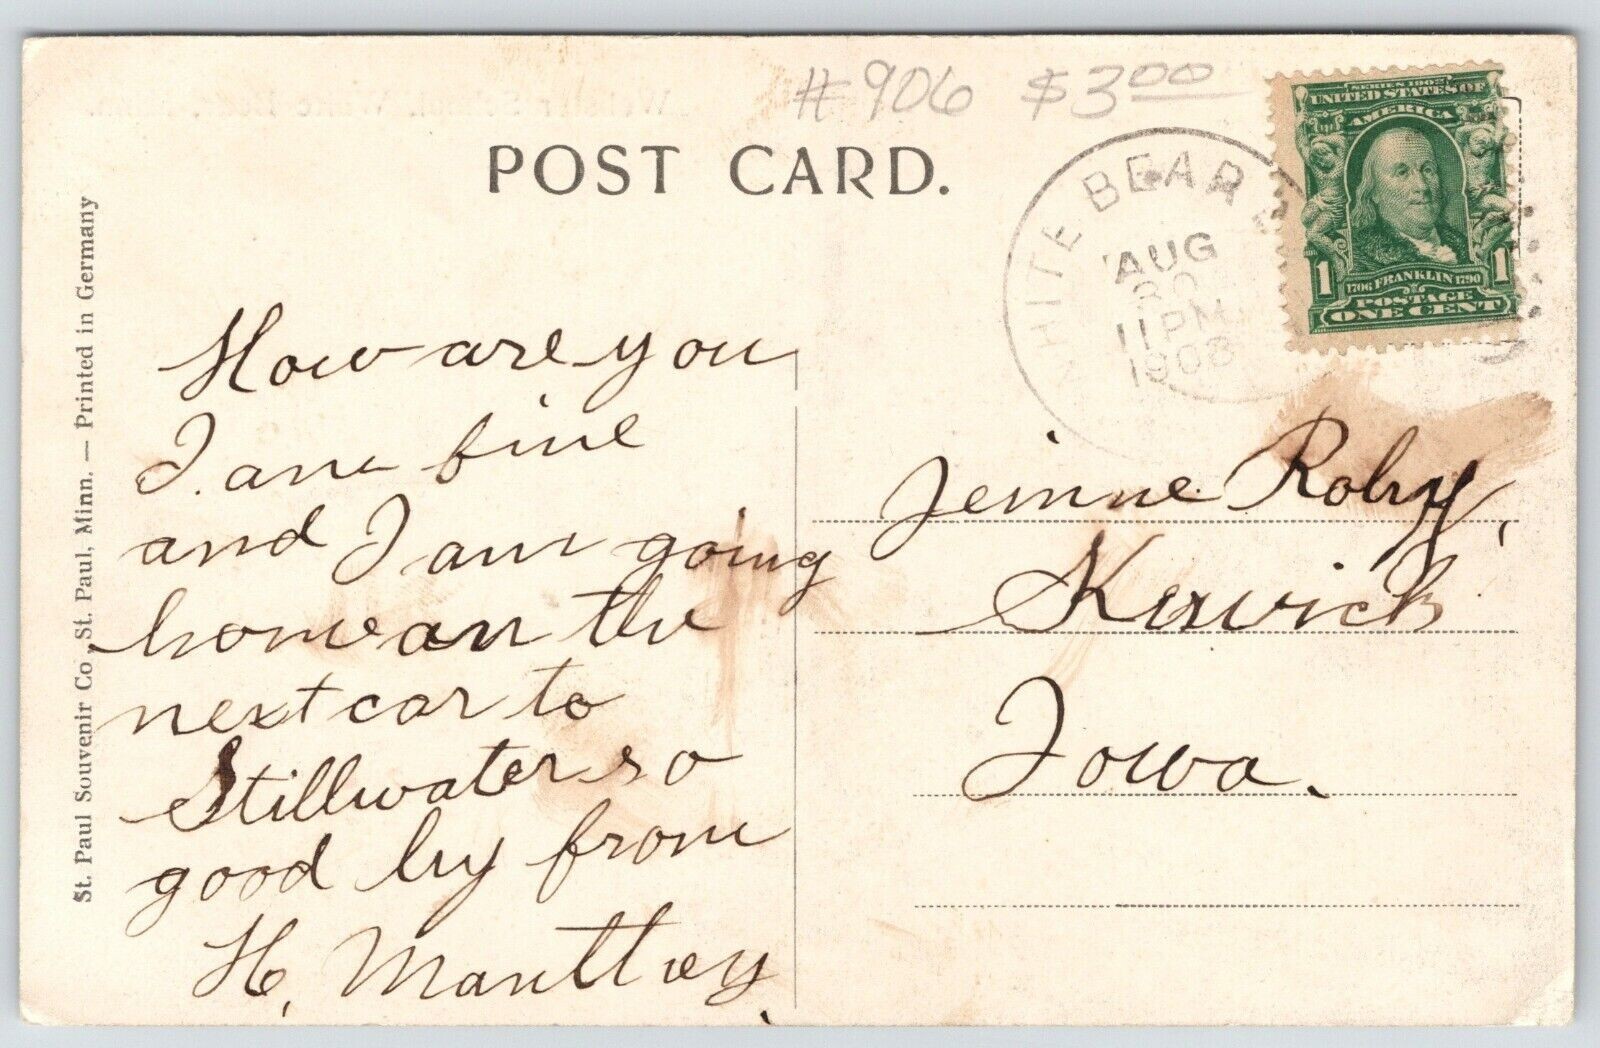 #906 $3.00
POST CARD.
WHITE BEAR
AUG
30
11 PM
1908
SERIES 1902
UNITED STATES OF
AMERICA
1 1
1706 FRANKLIN 1790
POSTAGE
ONE CENT
St. Paul Souvenir Co., St. Paul, Minn. — Printed in Germany
How are you
I am fine
and I am going
home an the
next car to
Stillwater so
good by from
H. Manttvey.
Jeinne Roby,
Keswick
Iowa.